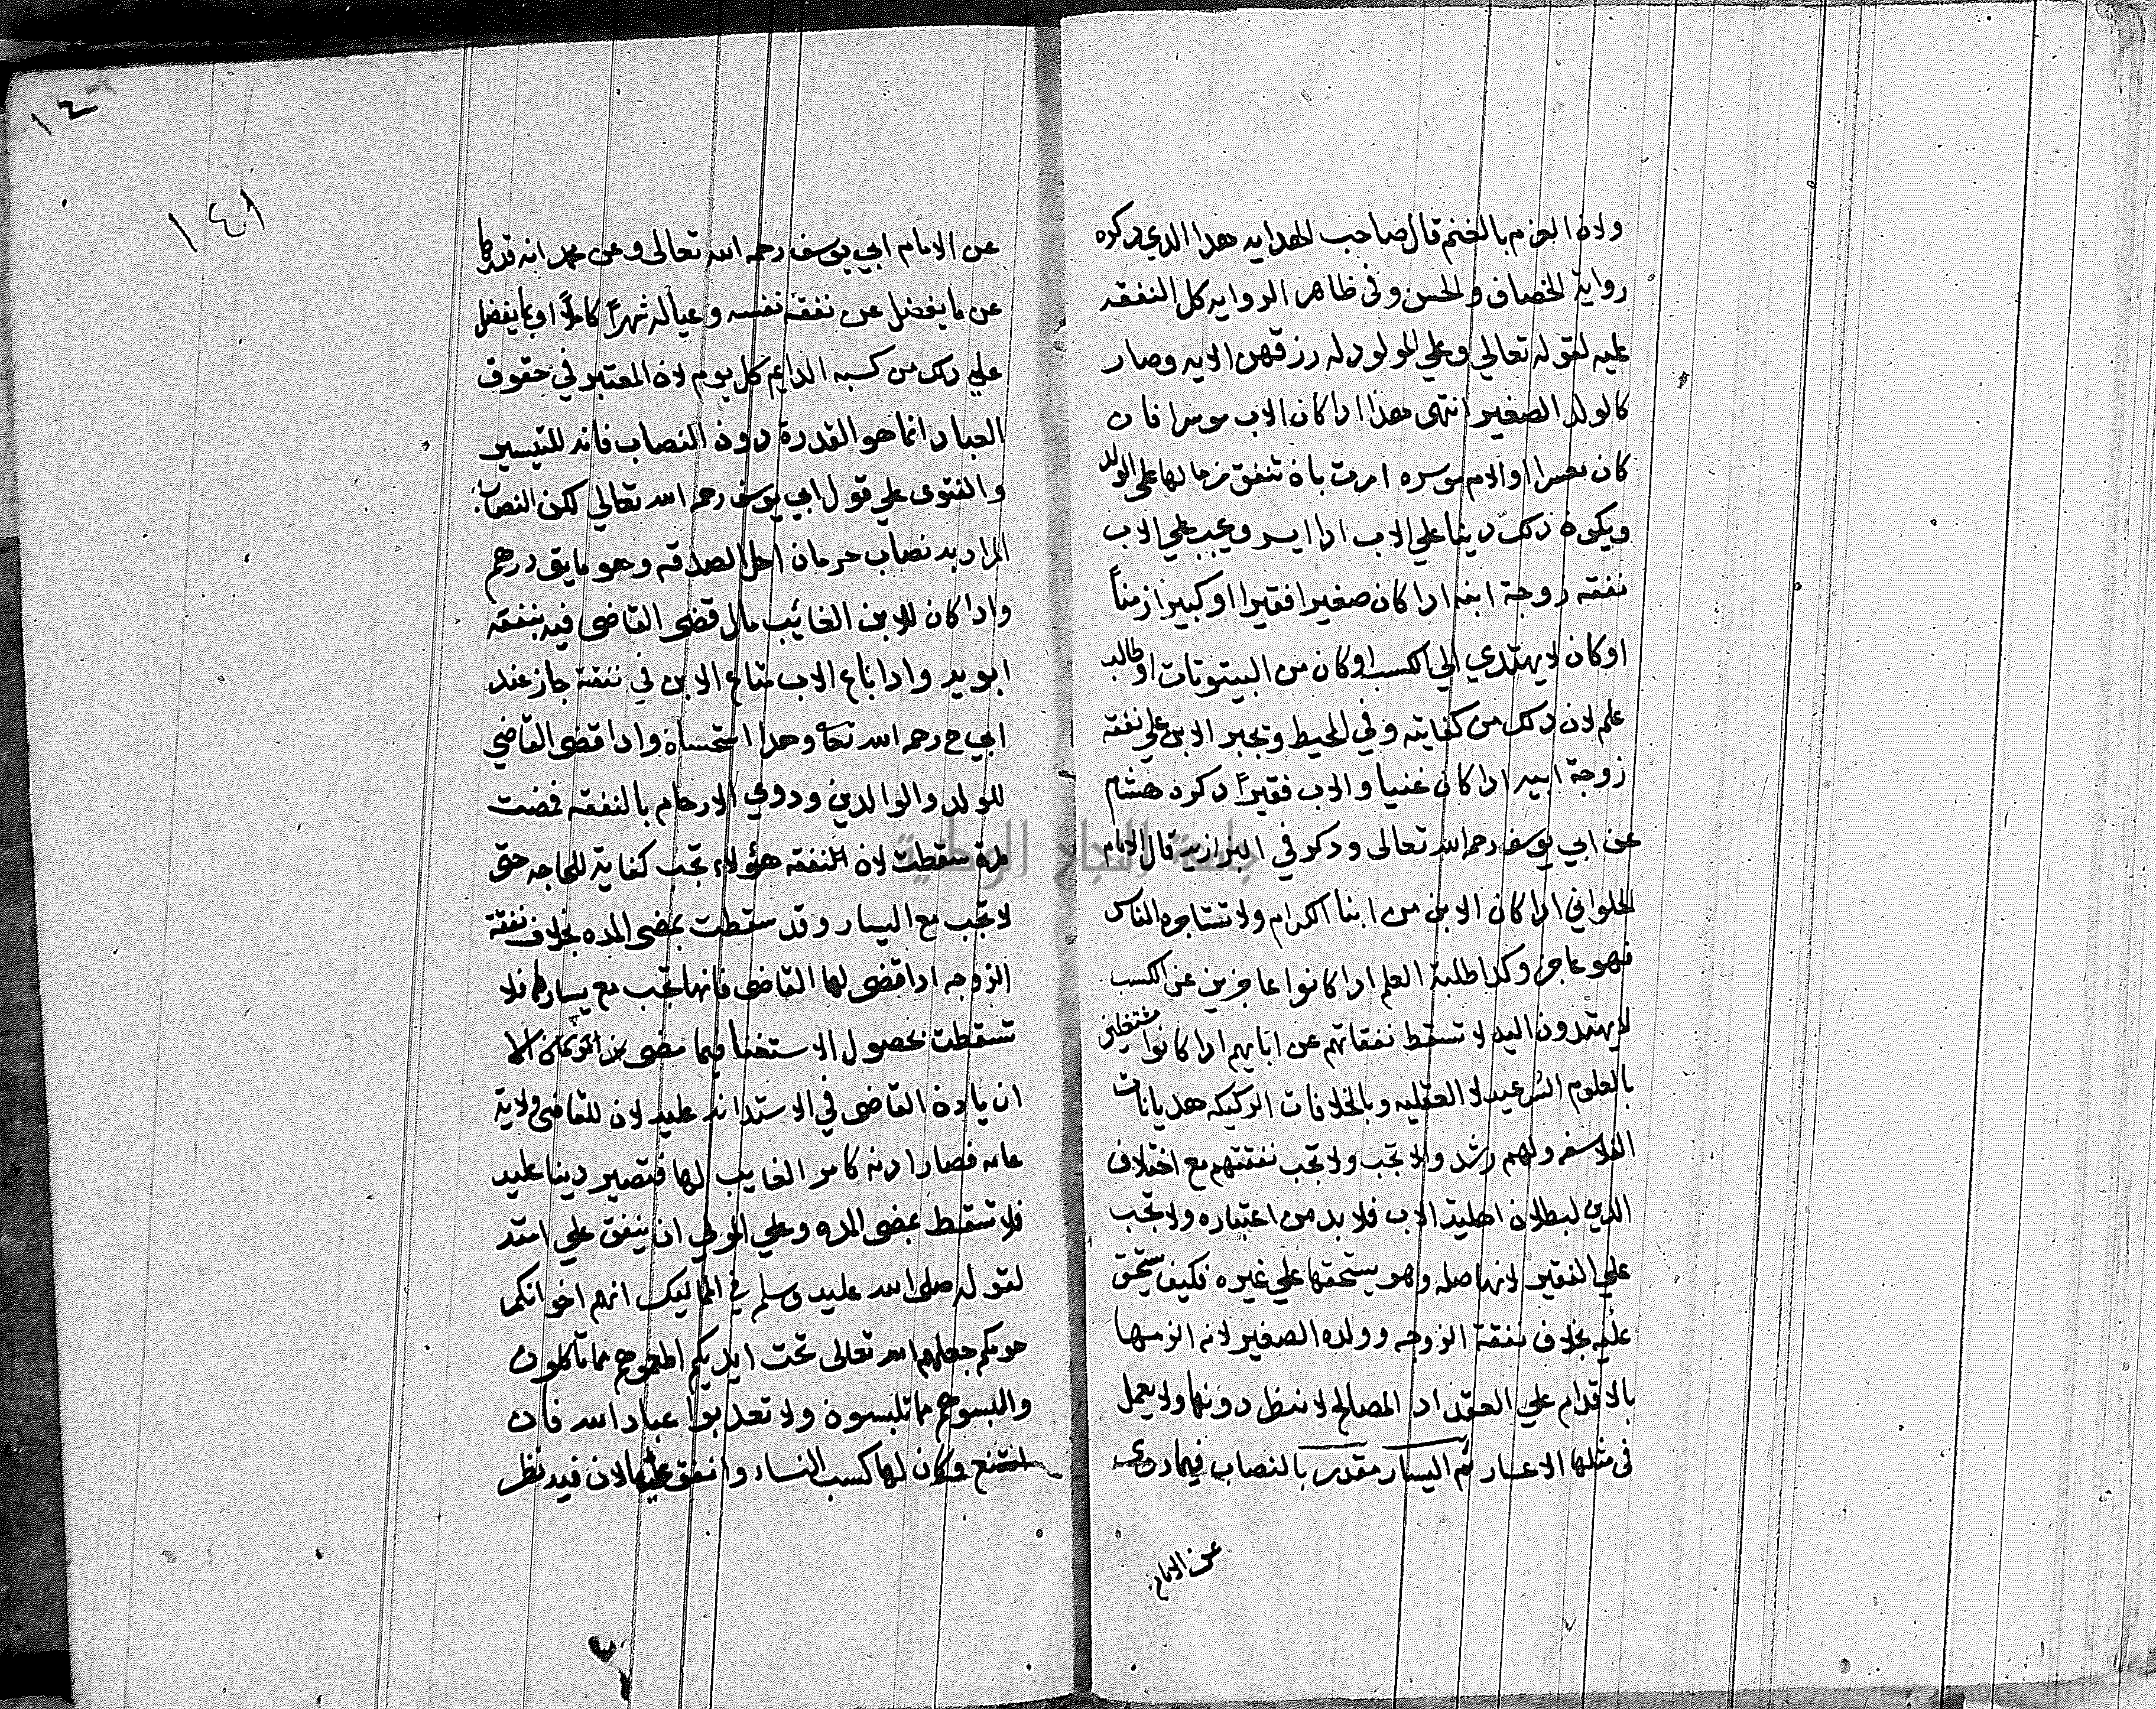 ولان الغرم بالغنم قال صاحب الهدايه هذا الذي ذكره
رواية الخصاف والحسن وفى ظاهر الروايه كل النفقه
عليه لقوله تعالي وعلي المولود له رزقهن الايه وصار
كالولد الصغير انتهى هذا اذا كان الاب موسرا فان
كان معسرا والام موسره امرت بان تنفق من مالها على الولد
ويكون ذلك دينا علي الاب اذا ايسر ويجب علي الاب
نفقه زوجة ابنه اذا كان صغيرا فقيرا او كبيرا زمناً
اوكان لا يهتدي الي الكسب اوكان من البيوتات او طالب
علم لان ذلك من كفايته وفي المحيط وتجبر الابن علي نفقة
زوجة ابيه اذا كان غنيا والاب فقيراً ذكره هشام
عن ابي يوسف رحمه الله تعالى وذكر في البزازيه قال الامام
الحلواني اذا كان الابن من ابنا الكرام ولا تستاجره الناس
فهو عاجز وكذا طلبة العلم اذا كانوا عاجزين عن الكسب
لا يهتدون اليه لا تسقط نفقاتهم عن ابايهم اذا كانوا مشتغلين
بالعلوم الشرعيه لا العقليه وبالخلافات الركيكه هديانات
الفلاسفه ولهم رشد والا تجب ولا تجب نفقتهم مع اختلاف
الدين لبطلان اهلية الاب فلا بد من اعتباره ولا تجب
علي الفقير لانها صله وهو يستحقها علي غيره فكيف تستحق
عليه بخلاف نفقة الزوجه وولده الصغير لانه الزمها
بالاقدام علي العقد اذ المصالح لا تنتظر دونها ولا يعمل
فى مثلها الاعسار ثم اليسار مقدر بالنصاب فيما روي
عن الامام
١٤
١٤١
عن الامام ابي يوسف رحمه الله تعالى وعن محمد انه قدره
عن ما يفضل عن نفقة نفسه وعياله شهراً كاملاً او بما يفضل
علي ذلك من كسبه الدايم كل يوم لان المعتبر في حقوق
العباد انما هو القدرة دون النصاب فانه للتيسير
والفتوى علي قول ابي يوسف رحمه الله تعالي لكن النصاب
المراد به نصاب حرمان اخذ الصدقه وهو مايتي درهم
واذا كان للابن الغائيب مال قضى القاضى فيه بنفقة
ابويه واذا باع الاب متاع الابن في نفقته جاز عند
ابي ح رحمه الله تعا وهذا استحسان واذا قضى القاضي
للولد والوالدين وذوي الارحام بالنفقه فمضت
مدة سقطت لان النفقه هؤلاء تجب كفاية للحاجه حتى
لا تجب مع اليسار وقد سقطت بمضى المده بخلاف نفقة
الزوجه اذا قضى لها القاضى فانها تجب مع يسارها فلا
تسقطت بحصول الاستغنا فيما مضى من الزمان الا
ان ياذن القاضى في الاستدانه عليه لان للقاضى ولاية
عامه فصار اذنه كامر الغايب لها فتصير دينا عليه
فلا تسقط بمضى المده وعلي المولي ان ينفق علي امته
لقوله صلى الله عليه وسلم في المماليك انهم اخوانكم
خولكم جعلهم الله تعالى تحت ايديكم اطعموهم مما تاكلون
والبسوهم مما تلبسون ولا تعذبوا عباد الله فان
امتنع وكان لها كسب النساء وانفق عليها لان فيه نظر
جامعة النجاح الوطنية